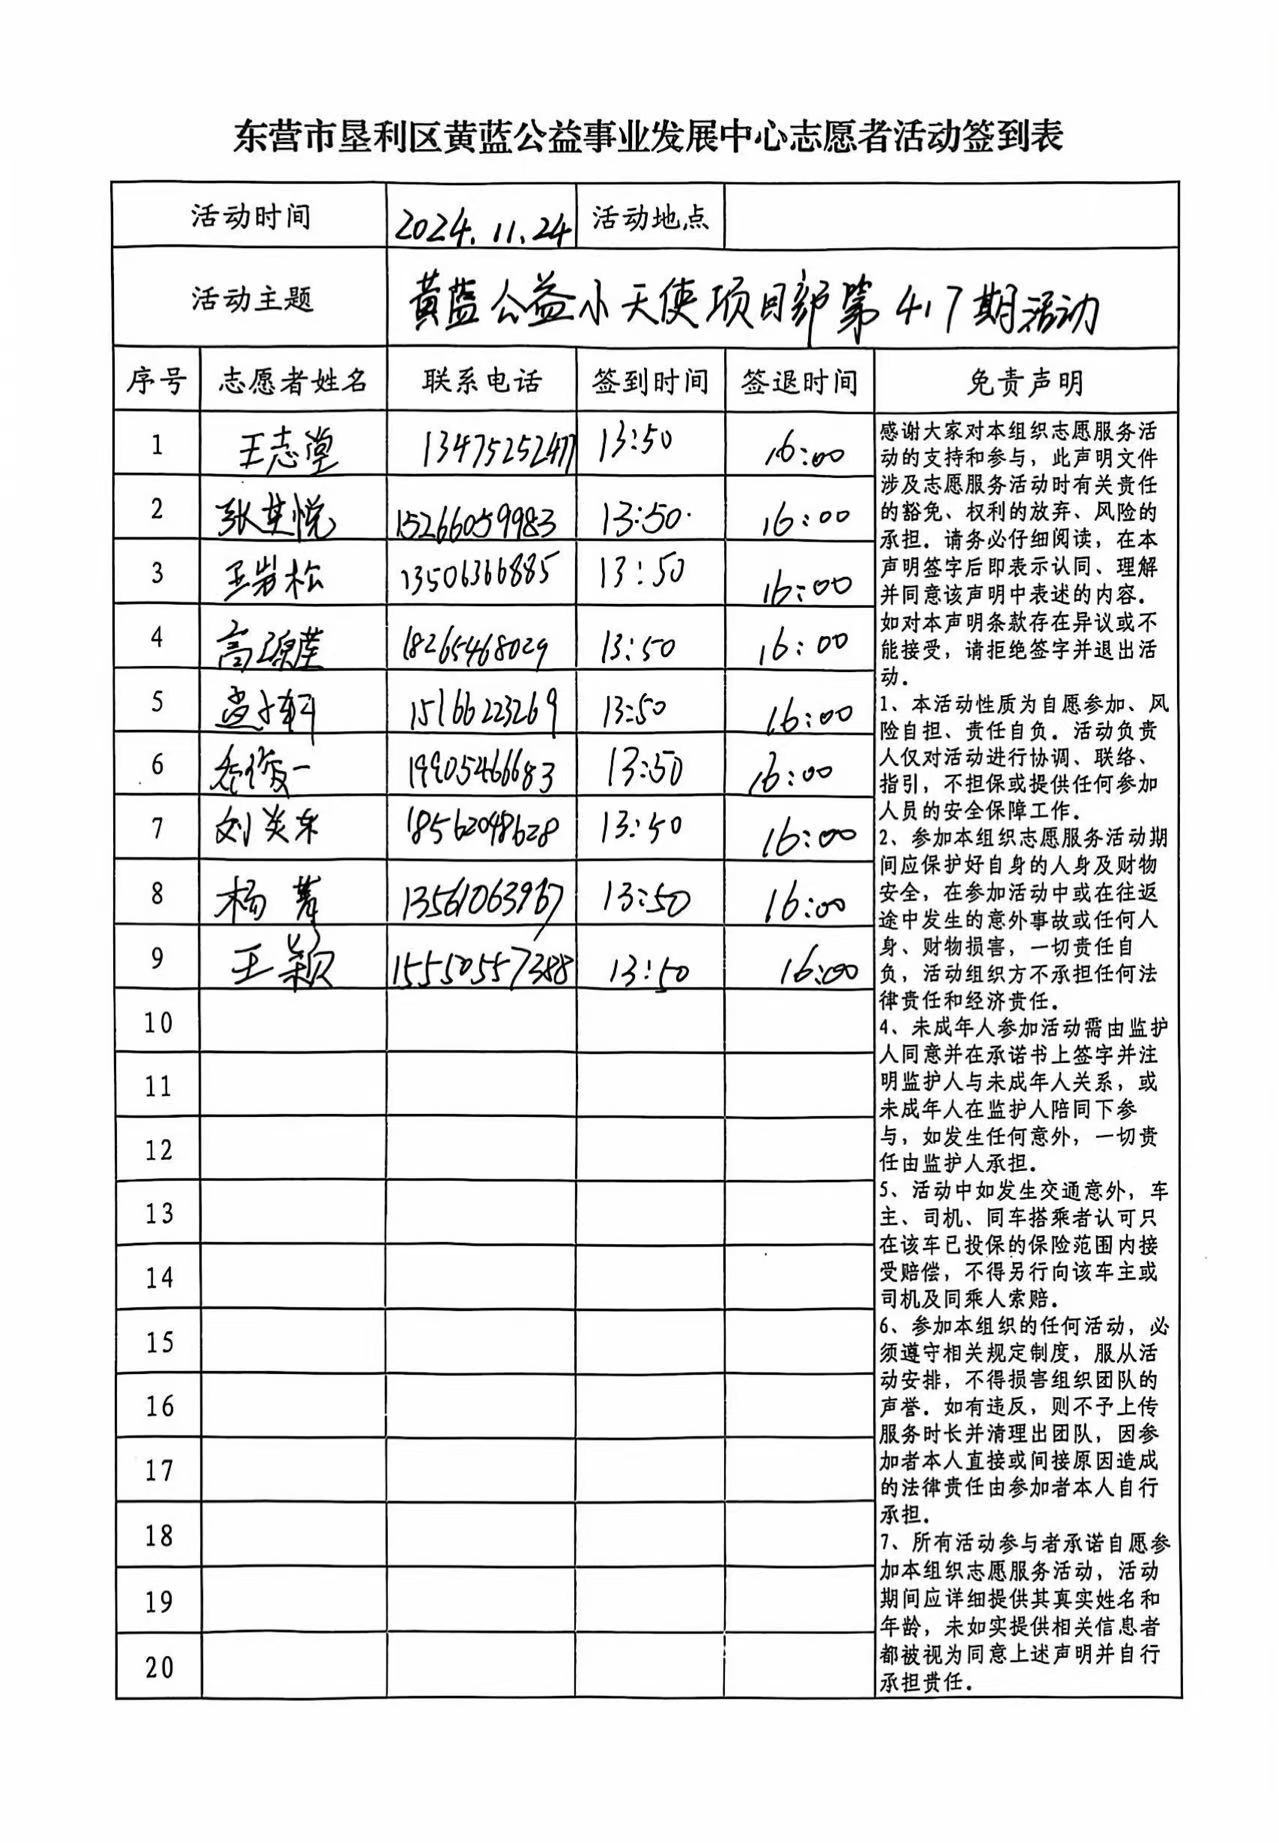 东营市垦利区黄蓝公益事业发展中心志愿者活动签到表
活动时间 2024.11.24 活动地点
活动主题 黄蓝公益小天使项目部第417期活动
序号 志愿者姓名 联系电话 签到时间 签退时间 免责声明
1 王志堂 13475252477 13:50 16:00
2 张英悦 15266059983 13:50 16:00
3 王岩松 13506366885 13:50 16:00
4 高 18265468029 13:50 16:00
5 15166223269 13:50 16:00
6 19905466683 13:50 16:00
7 刘美东 18562048628 13:50 16:00
8 杨菁 13561063967 13:50 16:00
9 王颖 15550557388 13:50 16:00
10
11
12
13
14
15
16
17
18
19
20
感谢大家对本组织志愿服务活
动的支持和参与，此声明文件
涉及志愿服务活动时有关责任
的豁免、权利的放弃、风险的
承担．请务必仔细阅读，在本
声明签字后即表示认同、理解
并同意该声明中表述的内容．
如对本声明条款存在异议或不
能接受，请拒绝签字并退出活
动．
1、本活动性质为自愿参加、风
险自担、责任自负．活动负责
人仅对活动进行协调、联络、
指引，不担保或提供任何参加
人员的安全保障工作．
2、参加本组织志愿服务活动期
间应保护好自身的人身及财物
安全，在参加活动中或在往返
途中发生的意外事故或任何人
身、财物损害，一切责任自
负，活动组织方不承担任何法
律责任和经济责任．
4、未成年人参加活动需由监护
人同意并在承诺书上签字并注
明监护人与未成年人关系，或
未成年人在监护人陪同下参
与，如发生任何意外，一切责
任由监护人承担．
5、活动中如发生交通意外，车
主、司机、同车搭乘者认可只
在该车已投保的保险范围内接
受赔偿，不得另行向该车主或
司机及同乘人索赔．
6、参加本组织的任何活动，必
须遵守相关规定制度，服从活
动安排，不得损害组织团队的
声誉．如有违反，则不予上传
服务时长并清理出团队，因参
加者本人直接或间接原因造成
的法律责任由参加者本人自行
承担．
7、所有活动参与者承诺自愿参
加本组织志愿服务活动，活动
期间应详细提供其真实姓名和
年龄，未如实提供相关信息者
都被视为同意上述声明并自行
承担责任．